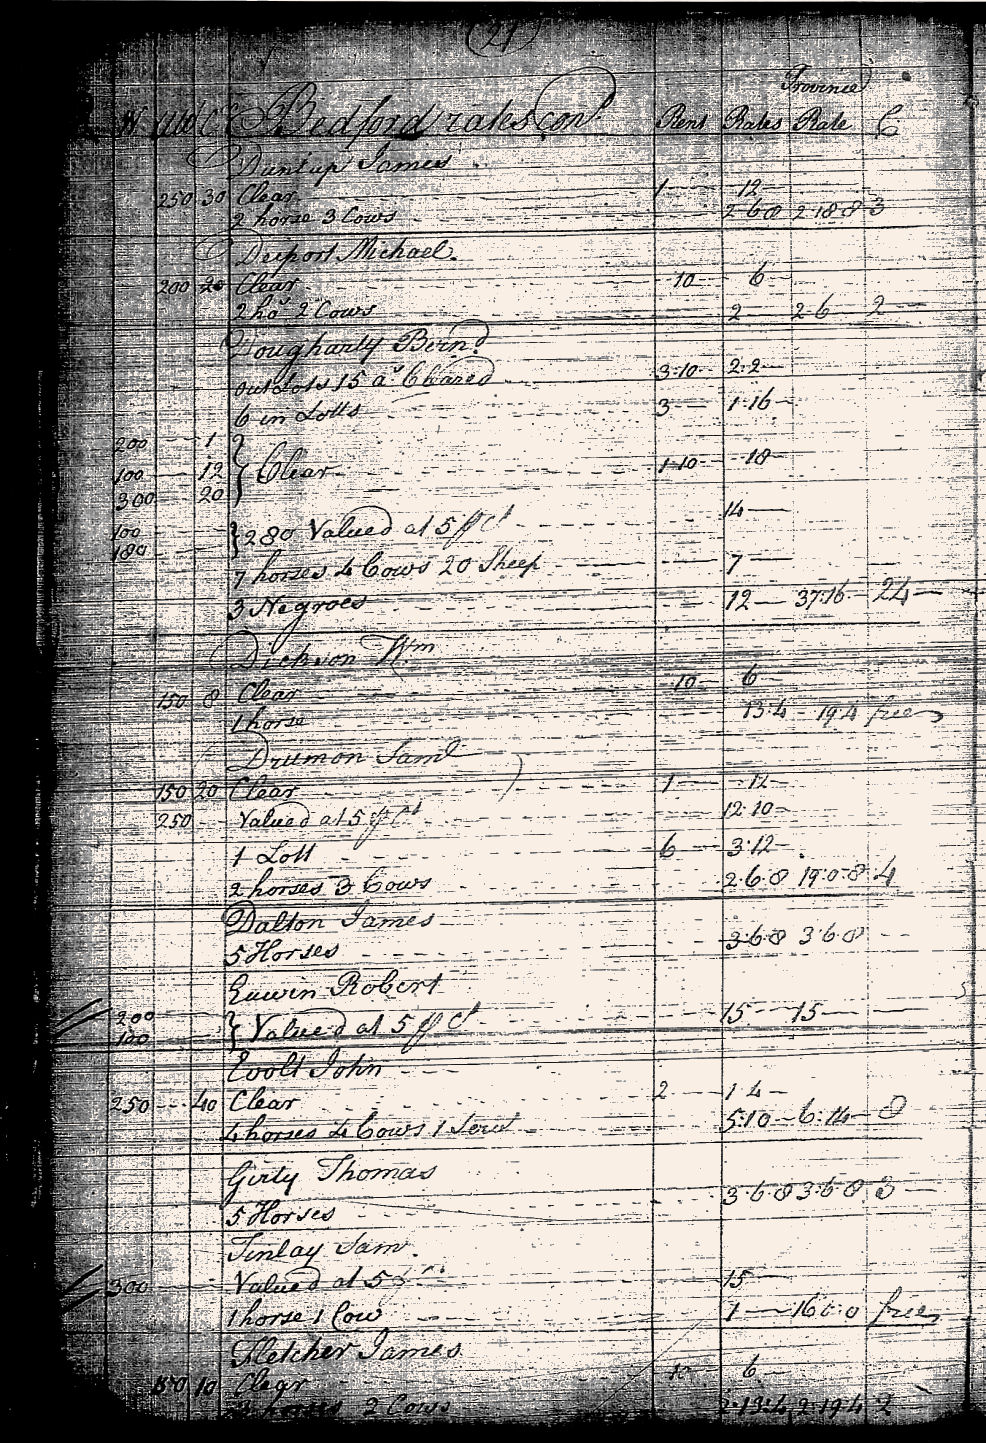 21
Province
N C Bedford rates con.t Rent Rates Rate C
Dunlap James
250 30 Clear 1 12
2 horse 3 Cows 2 6 8 2 18 8 3
Deiport Michael
200 20 Clear 10 6
2 hos 2 Cows 2 2 6 2
Dougharty Bern.d
Out Lots 15 a.s Cleared 3 10 2 2
6 in Lotts 3 1 16
200 1
100 12 } Clear 1 10 18
300 20
14
100
180 } 280 Valued at 5 p Ct
7 horses 4 Cows 20 Sheep 7
3 Negroes 12 37 16 24
Dickson Wm
150 8 Clear 10 6
1 horse 13 4 19 4 free
Drumon Saml
150 20 Clear 1 12
250 Valued at 5 p Ct 12 10
1 Lott 6 3 12
2 horses 3 Cows 2 6 8 19 0 8 4
Dalton James
5 Horses 3 6 8 3 6 8
Euwin Robert
200
100 } Valued at 5 p Ct 15 15
Evolt John
250 40 Clear 2 1 4
4 horses 4 Cows 1 Serv.t 5 10 6 14 8
Girty Thomas
5 Horses 3 6 8 3 6 8 3
Finlay Sam.
300 Valued at 5 15
1 horse 1 Cow 1 16 0 0 free
Fletcher James
150 10 Clear 10 6
horses 2 Cows 2 13 4 2 19 4 2